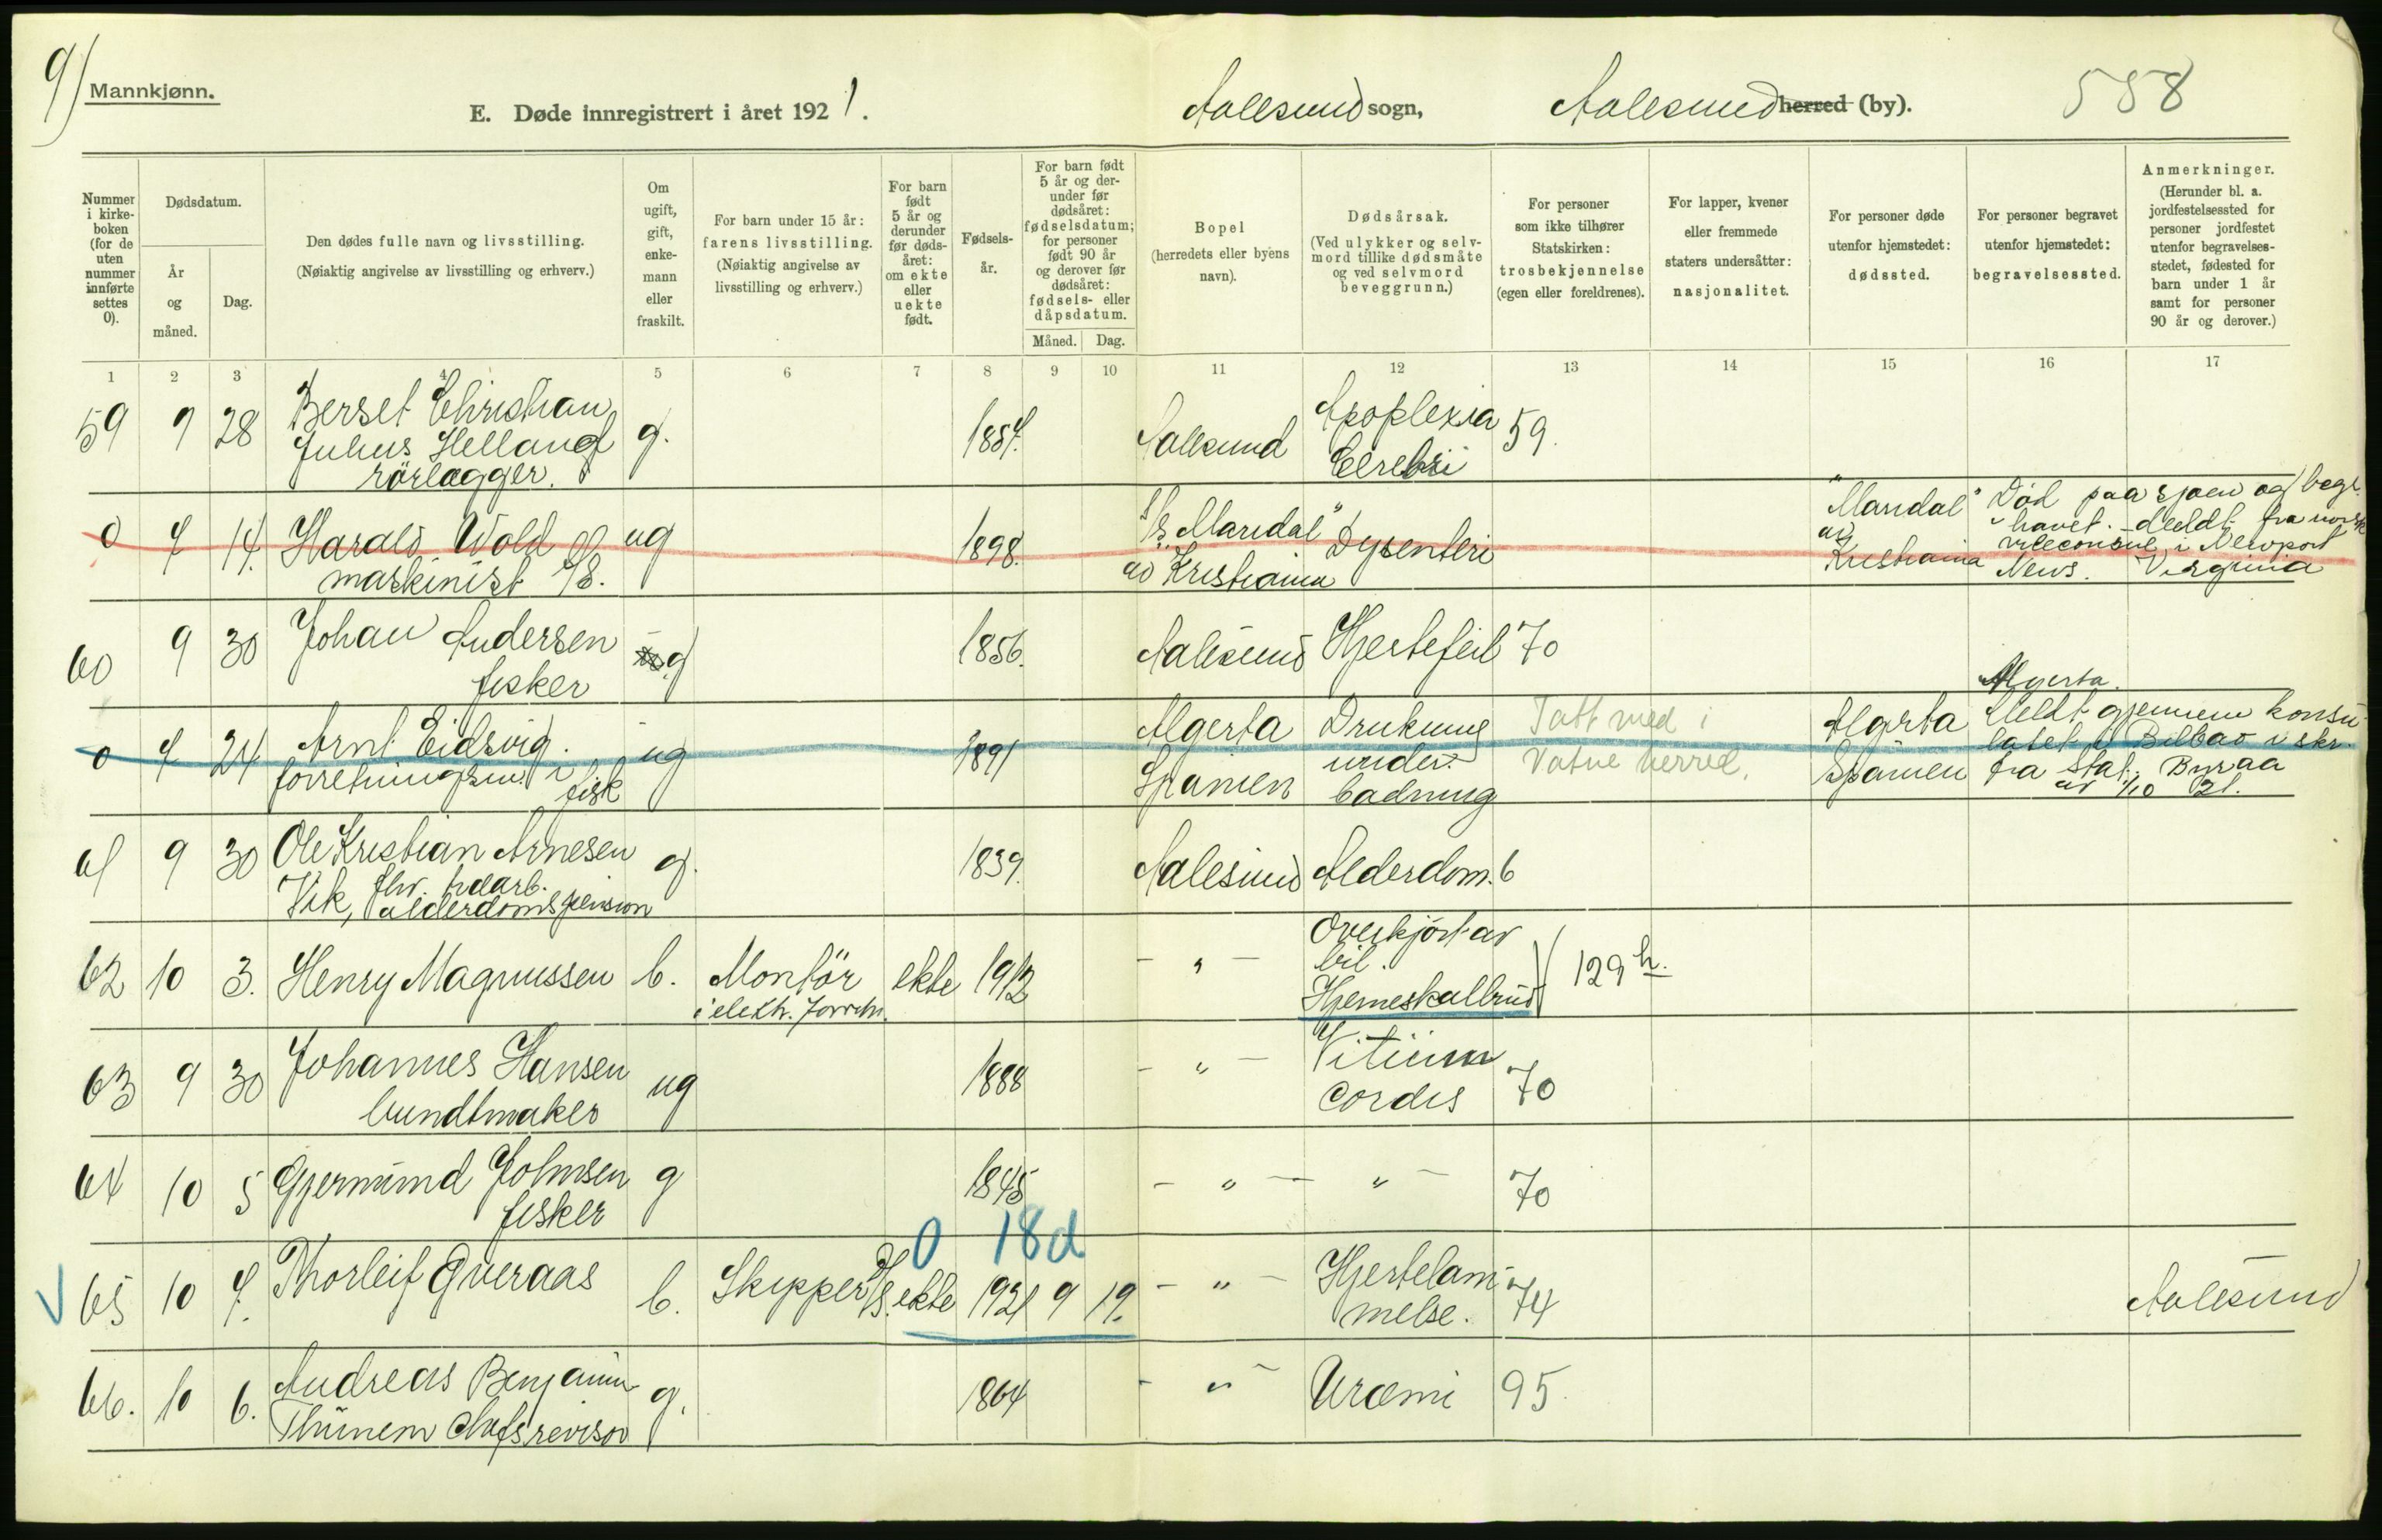 9)
Mannkjønn.
E. Døde innregistrert i året 1921.
Aalesund sogn,
Aalesund herred (by).
558
Nummer i kirke-boken (for de uten nummer innførte settes 0).
Dødsdatum.
År og måned.
Dag.
Den dødes fulle navn og livsstilling.
(Nøiaktig angivelse av livsstilling og erhverv.)
Om ugift, gift, enke-mann eller fraskilt.
For barn under 15 år: farens livsstilling.
(Nøiaktig angivelse av livsstilling og erhverv.)
For barn født 5 år og derunder før døds-året: om ekte eller uekte født.
Fødsels-år.
For barn født 5 år og der-under før dødsåret: fødselsdatum; for personer født 90 år og derover før dødsåret: fødsels- eller dåpsdatum.
Måned. Dag.
Bopel
(herredets eller byens navn).
Dødsårsak.
(Ved ulykker og selv-mord tillike dødsmåte og ved selvmord beveggrunn.)
For personer som ikke tilhører Statskirken: trosbekjennelse (egen eller foreldrenes).
For lapper, kvener eller fremmede staters undersåtter: nasjonalitet.
For personer døde utenfor hjemstedet: dødssted.
For personer begravet utenfor hjemstedet: begravelsessted.
Anmerkninger.
(Herunder bl. a. jordfestelsessted for personer jordfestet utenfor begravelses-stedet, fødested for barn under 1 år samt for personer 90 år og derover.)
1 2 3 4 5 6 7 8 9 10 11 12 13 14 15 16 17
59 9 28 Berset Christian Julius Helland rörlægger. g. 1857. Aalesund Apoplexia Cerebri 59.
0 7 14. Harald Wold maskinist S/S. ug 1898. S/S "Mandal" av Kristiania Dysenteri "Mandal" av Kristiania Död paa sjøen og begr. i havet. - Meldt fra norsk viceconsul i Newport News. Virginia
60 9 30 Johan Andersen fisker g 1856. Aalesund Hjertefeil 70
0 7 24 Arnt Eidsvig. forretningsm. i fisk ug 1891 Algerta Spanien Drukning under badning Tatt med i Vatne herred. Algerta Spanien Algerta. Meldt gjennem konsulatet i Bilbao i skr. fra Stat. Byraa av 1/10 21.
61 9 30 Ole Kristian Arnesen Vik, fhv. alderdomspension g. 1839. Aalesund Alderdom. 6
62 10 3. Henry Magnussen b. Montör i elektr. forretn. ekte 1912 - " - Overkjørt av bil. Hjerneskallbrud 129 h.
63 9 30 Johannes Hansen bundtmaker ug 1888 - " - Vitium cordis 70
64 10 5 Gjermund Johnsen fisker g 1845 - " - - " - 70
0 18d
65 10 7. Thorleif Overaas b. Skipper S/S. ekte 1921 9 19. - " - Hjertelammelse. 74 Aalesund
66. 10 6. Andreas Benjamin Thinnem Chefsrevisor g. 1864 - " - Uræmi 95.